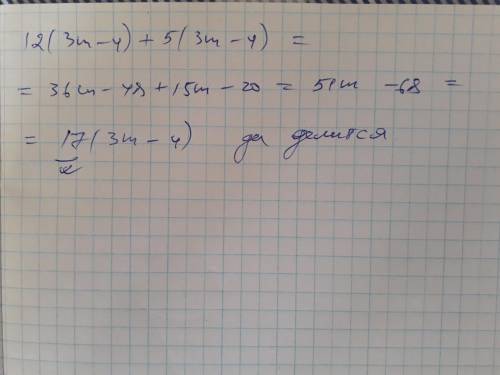 12(3m-4)+5(3m-4) =
= 36m-48+15m-20 = 51m -68 =
= 17(3m-4) да делится